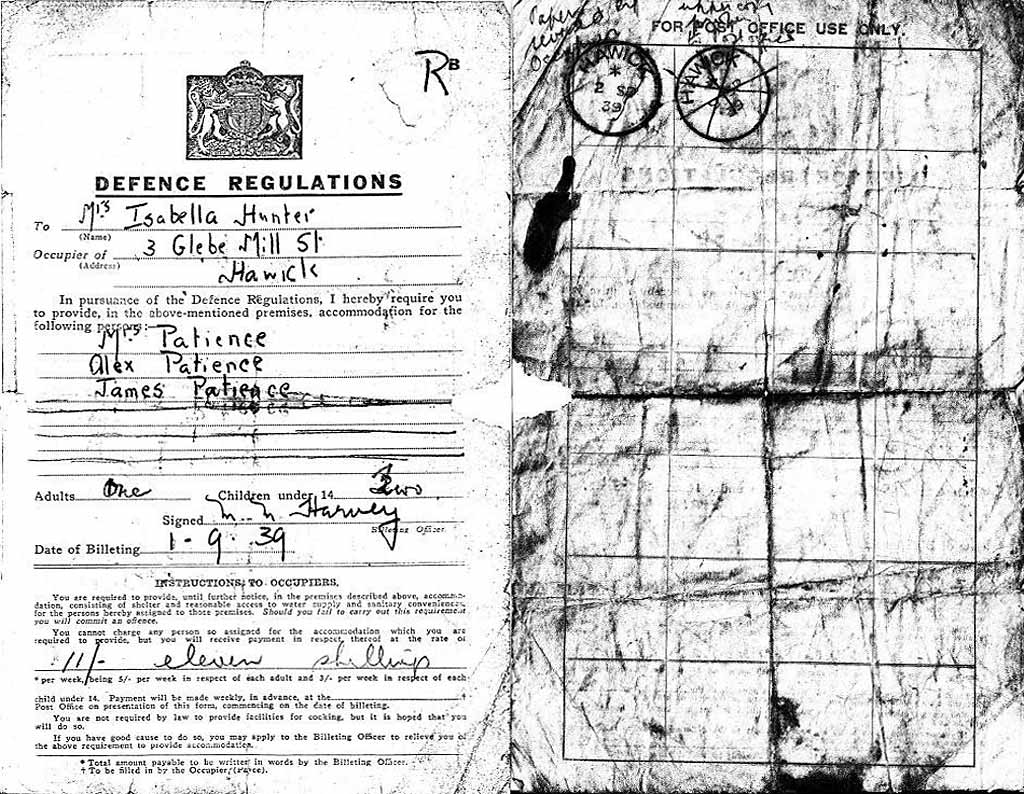 R B
DEFENCE REGULATIONS
To Mrs Isabella Hunter
(Name)
Occupier of 3 Glebe Mill St
(Address)
Hawick
In pursuance of the Defence Regulations, I hereby require you
to provide, in the above-mentioned premises, accommodation for the
following persons:—
Mrs Patience
Alex Patience
James Patience
Adults One Children under 14 Two
Signed M. N. Harvey
Billeting Officer.
Date of Billeting 1-9-39
INSTRUCTIONS TO OCCUPIERS.
You are required to provide, until further notice, in the premises described above, accommo-
dation, consisting of shelter and reasonable access to water supply and sanitary conveniences,
for the persons hereby assigned to those premises. Should you fail to carry out this requirement
you will commit an offence.
You cannot charge any person so assigned for the accommodation which you are
required to provide, but you will receive payment in respect thereof at the rate of
11/- eleven shillings
* per week, being 5/- per week in respect of each adult and 3/- per week in respect of each
child under 14. Payment will be made weekly, in advance, at the †
Post Office on presentation of this form, commencing on the date of billeting.
You are not required by law to provide facilities for cooking, but it is hoped that you
will do so.
If you have good cause to do so, you may apply to the Billeting Officer to relieve you of
the above requirement to provide accommodation.
* Total amount payable to be written in words by the Billeting Officer.
† To be filled in by the Occupier (Payee).
Paper
FOR POST OFFICE USE ONLY.
HAWICK
2 SP
39
HAWICK